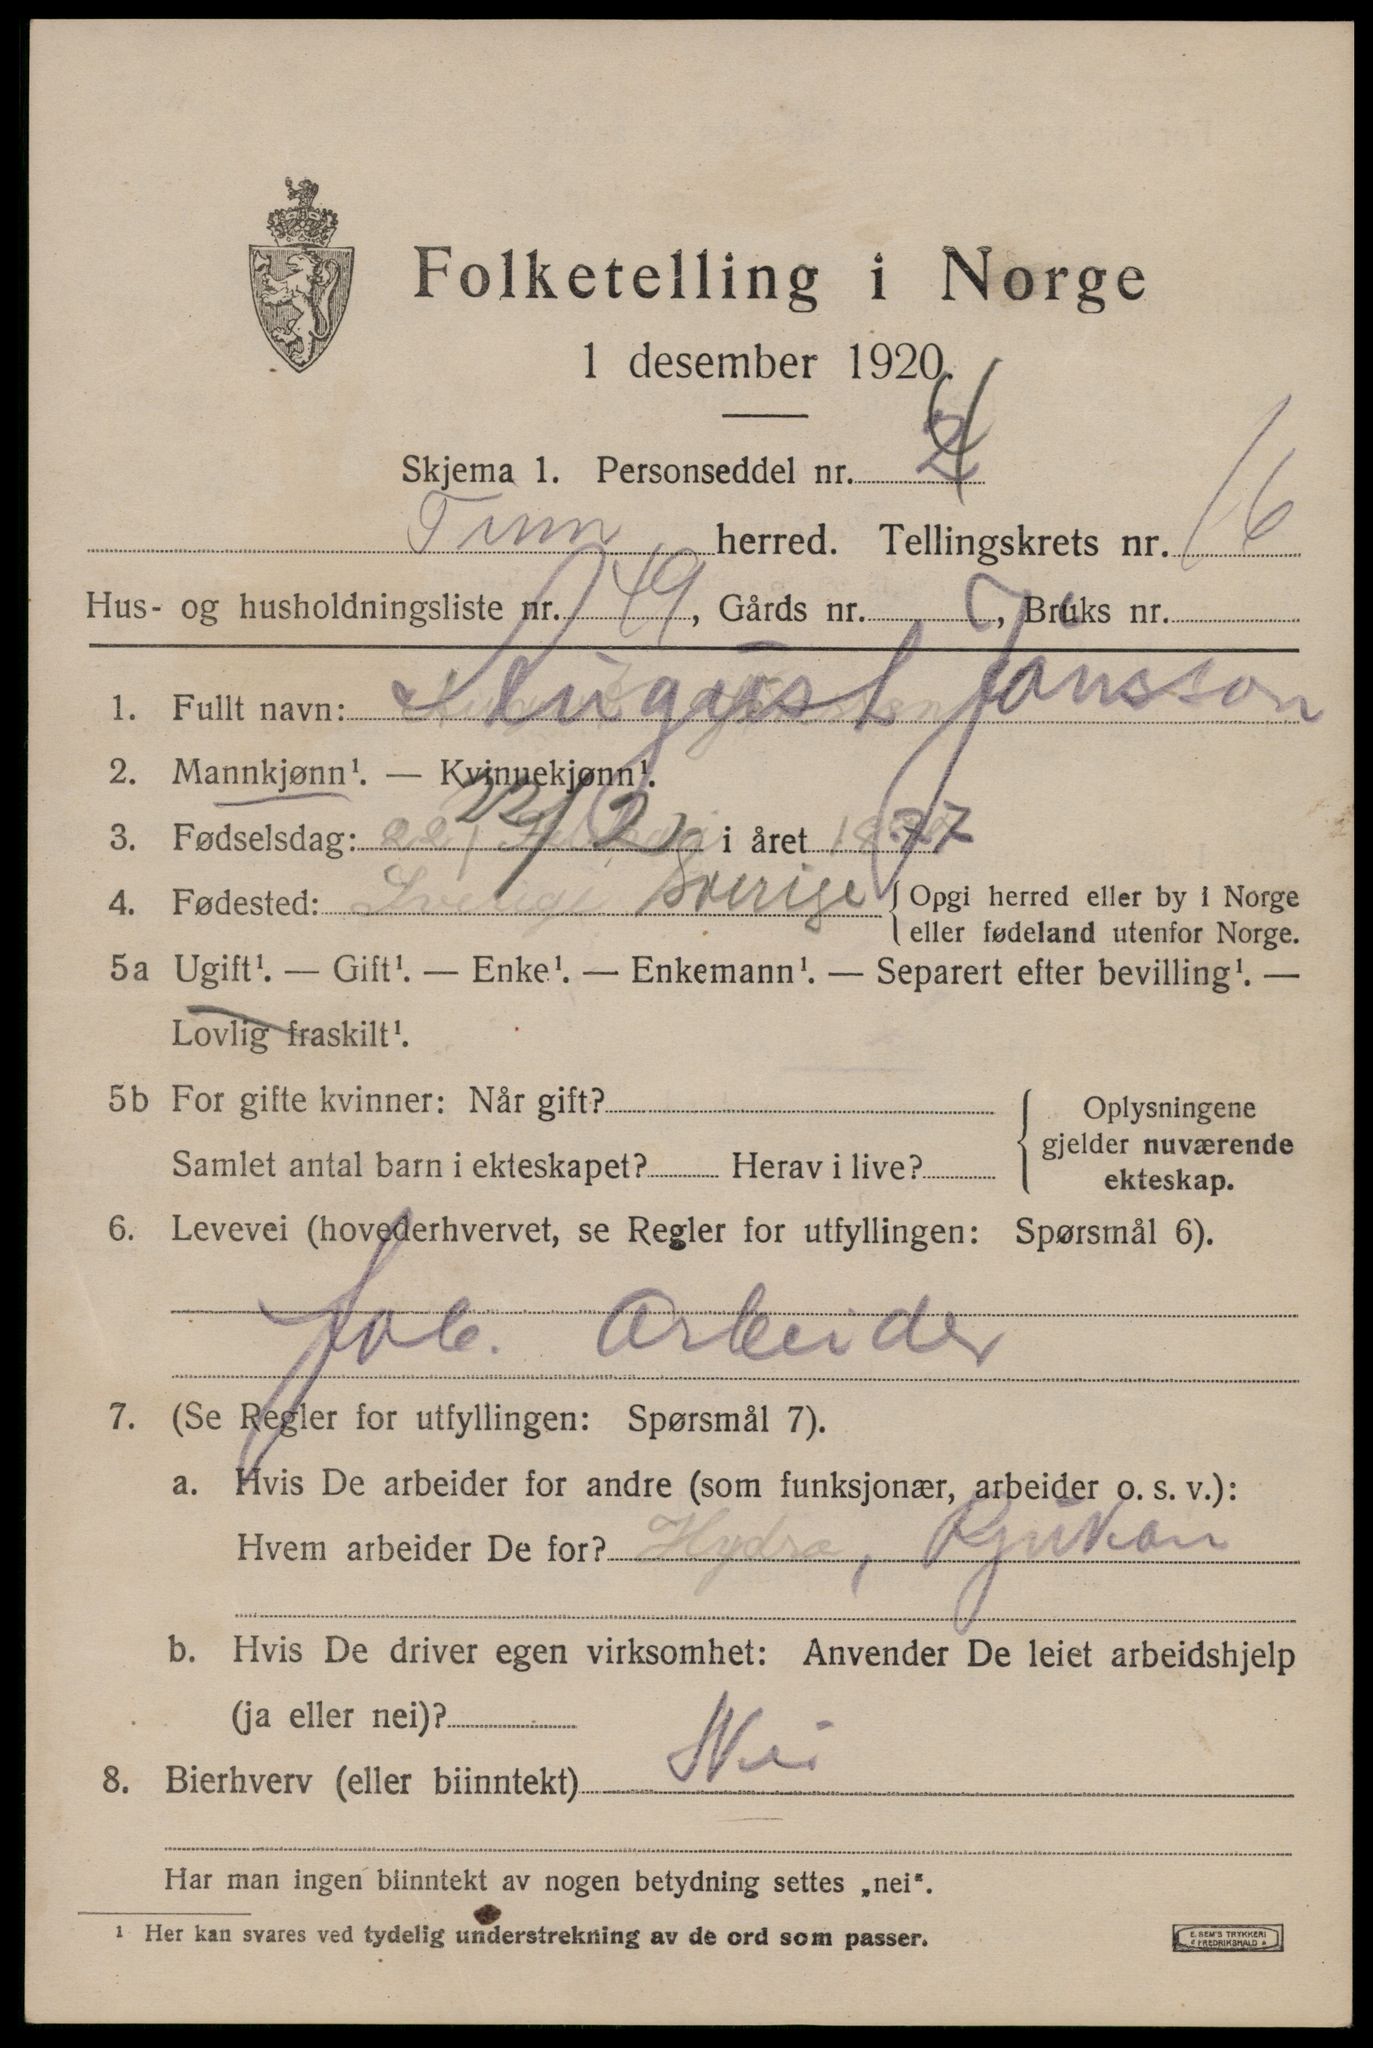 Folketelling i Norge
1 desember 1920.
Skjema 1. Personseddel nr. 2
Tinn herred. Tellingskrets nr. 16
Hus- og husholdningsliste nr. 49, Gårds nr. , Bruks nr.
1. Fullt navn: August Jonsson
2. Mannkjønn¹. — Kvinnekjønn¹.
3. Fødselsdag: 22/2 i året 1877
4. Fødested: Sverige Sverige { Opgi herred eller by i Norge
eller fødeland utenfor Norge.
5a Ugift¹. — Gift¹. — Enke¹. — Enkemann¹. — Separert efter bevilling¹. —
Lovlig fraskilt¹.
5b For gifte kvinner: Når gift? { Oplysningene
gjelder nuværende
Samlet antal barn i ekteskapet? Herav i live? ekteskap.
6. Levevei (hovederhvervet, se Regler for utfyllingen: Spørsmål 6).
fab. Arbeider
7. (Se Regler for utfyllingen: Spørsmål 7).
a. Hvis De arbeider for andre (som funksjonær, arbeider o. s. v.):
Hvem arbeider De for? Hydro, Rjukan
b. Hvis De driver egen virksomhet: Anvender De leiet arbeidshjelp
(ja eller nei)?
8. Bierhverv (eller biinntekt) Nei
Har man ingen biinntekt av nogen betydning settes „nei".
¹ Her kan svares ved tydelig understrekning av de ord som passer.
E. SEM'S TRYKKERI
FREDRIKSHALD